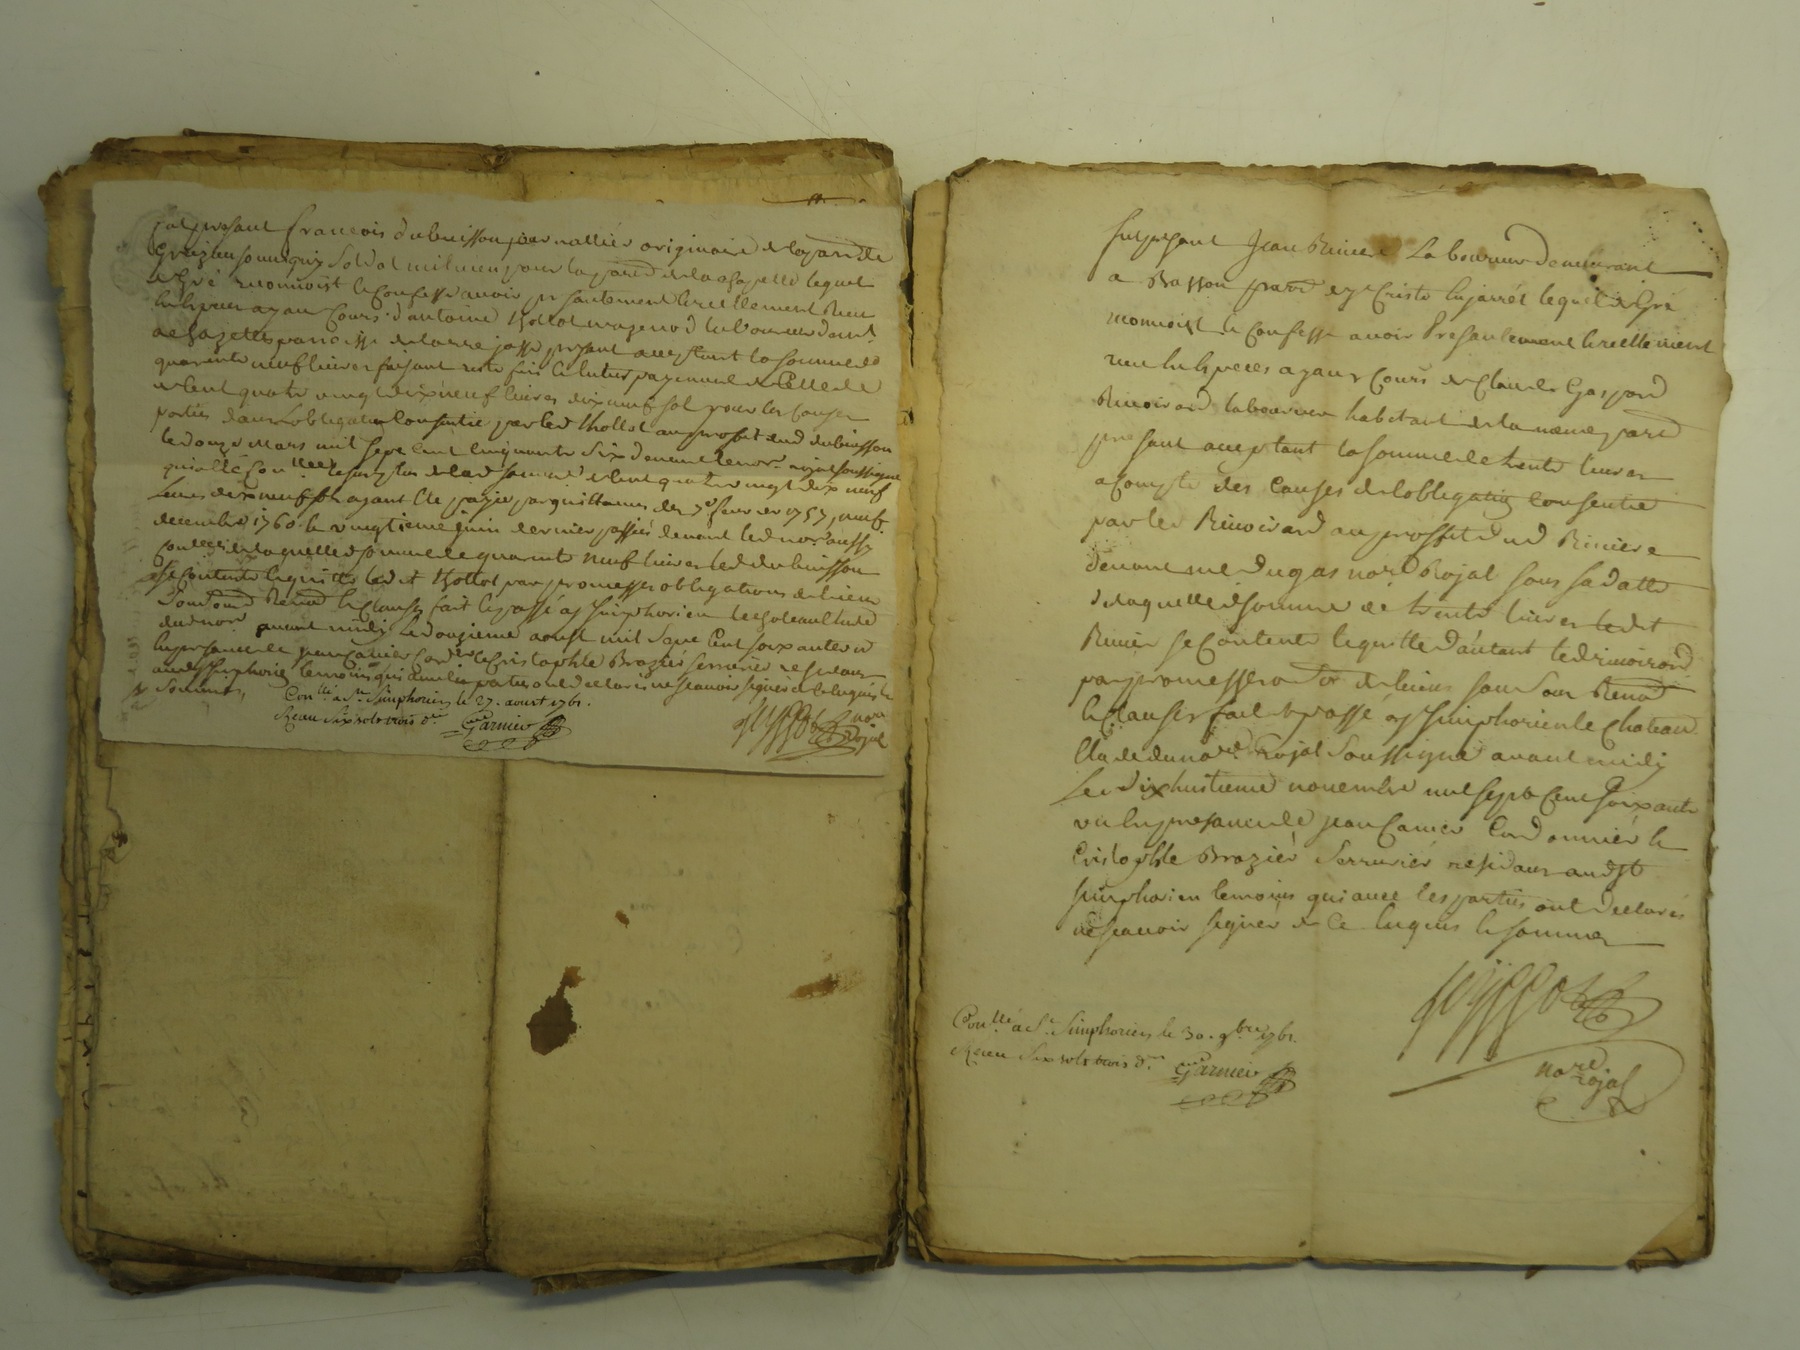 fut presant francois dubuisson journallier originaire de la parr de
Grezieu soldat milicien pour la par de la chapelle lequel
de Gré reconnoist & confesse avoir presantement & reellement Receu
En especes ayant Cours d'antoine thollot laboureur dem.t
de paroisse de larajasse presant acceptant la somme de
quarante neuf livres faisant reste fin & entier payement de Celle de
de Cent quatre vingt dix neuf livres dix neuf sol pour les causes
portées dans l'obligation Consentie par led thollot au proffit dud dubuisson
le douze Mars mil sept Cent Cinquante Six devant le no.re royal soussigné
le surplus de lad somme de Cent quatre vingt dix neuf
livres dix neuf sol ayant été payée par quittances des 7.e feuvrier 1757, neuf
decembre 1760 le vingtieme juin dernier passées devant led no.re aussy
de laquelle somme de quarante neuf livres led dubuisson
se Contente & quitte ledit thollot par promesses obligations de biens
Renon.d & Clauses fait & passé a s.t simphorien le chateau Etude
dud no.re avant midy le douzieme aoust mil sept Cent soixante un
En presance de jean Canier Cord.er & Cristophle Brazier serrurier residans
aud s.t simphorien temoins qui avec les parties ont declarés ne scavoir signer de Ce Enquis &
Sommés
Con.llé a S.t Simphorien le 27. aoust 1761.
Receu Six sols trois d.rs Garnier
no.re
Royal
fut presant Jean Riviere Laboureur demeurant
a Basson parr de s.t Criste En jarrêt lequel de Gré
reconnoist & confesse avoir Presantement & reellement
receu En Especes ayant Cours de Claude Gaspard
Rivoirard laboureur habitant de la meme parr
presant acceptant la somme de trente livres
a Compte des Causes de l'obligation Consentie
par led Rivoirard au proffit dud Riviere
devant me dugas no.re Royal sous sa datte
de laquelle somme de trente livres ledit
Rivier se Contente & quitte d'autant led rivoirard
par promesses de biens Renon.d
& Clauses fait & passé a s.t simphorien le Chateau
Etude du no.re Royal Soussigné avant midy
Le dixhuitieme novembre mil sept Cent soixante
un En presance de jean Canier Cordonnier &
Cristophle Brazier Serrurier residans aud st
simphorien temoins qui avec les parties ont declarés
ne scavoir signer de Ce Enquis & sommés
no.re
royal
Con.llé a S.t Simphorien le 30. 9.bre 1761.
Receu Six sols trois d.rs Garnier